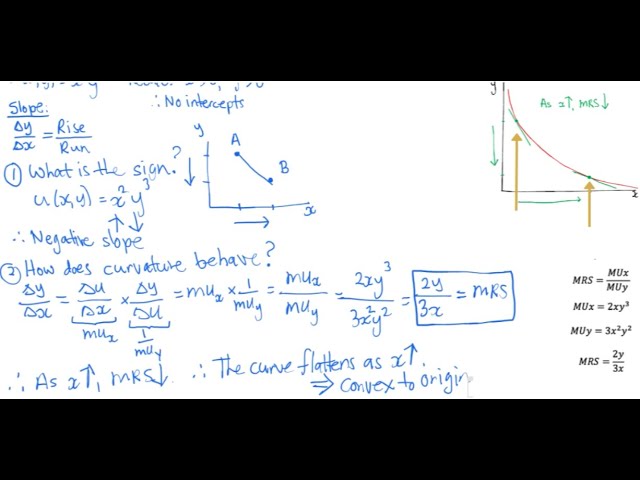 ∴ No intercepts
Slope:
Δy/Δx = Rise/Run
① What is the sign?
u(x,y) = x²y³
↑ ↓
∴ Negative slope
y
A
B
x
② How does curvature behave?
Δy/Δx = Δu/Δx × Δy/Δu = mux × 1/muy = mux/muy = 2xy³/3x²y² = 2y/3x = MRS
mux
1/muy
∴ As x↑, MRS↓ ∴ The curve flattens as x↑.
⇒ convex to origin
y
As x↑, MRS↓
x
MRS = MUx/MUy
MUx = 2xy³
MUy = 3x²y²
MRS = 2y/3x